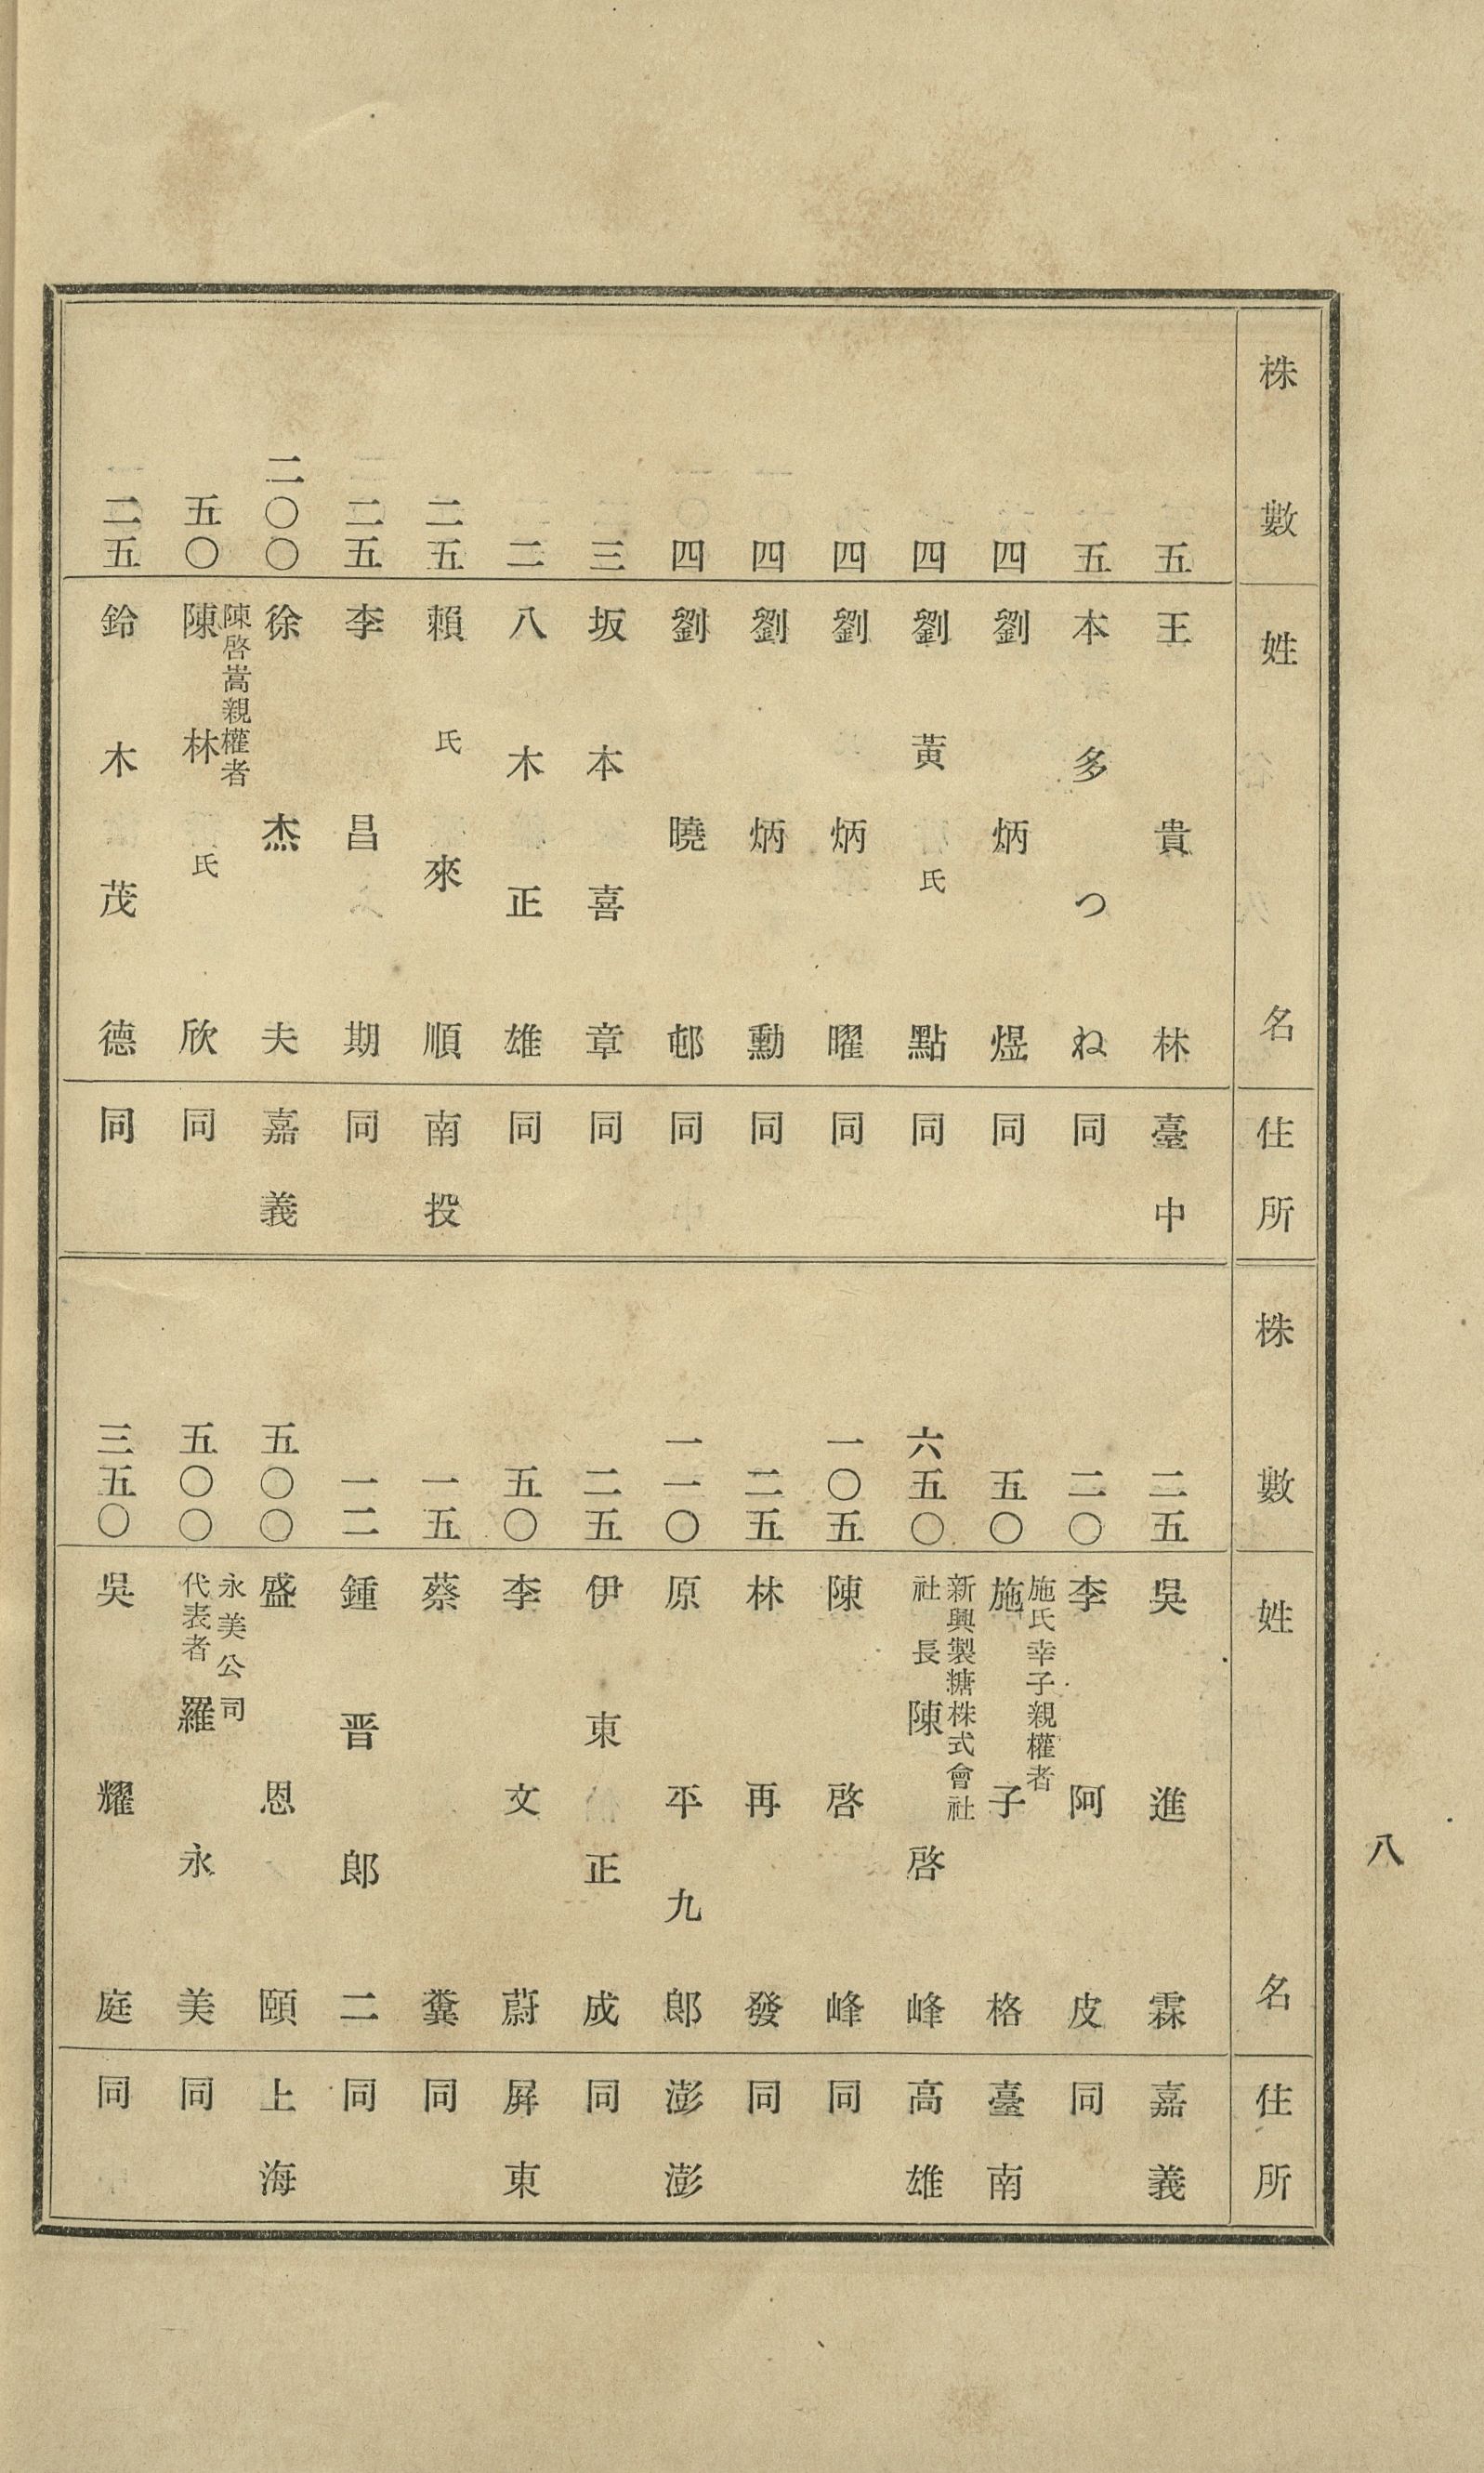 八
株數 姓名 住所
五 王貴林 臺中
五 本多つね 同
四 劉炳煜 同
四 劉黃氏點 同
四 劉炳曜 同
四 劉炳勳 同
四 劉曉邨 同
三 坂本喜章 同
二 八木正雄 同
二五 賴氏來順 南投
二五 李昌期 同
二〇〇 徐杰夫 嘉義
五〇 陳啓嵩親權者 陳林氏欣 同
二五 鈴木茂德 同
株數 姓名 住所
二五 吳進霖 嘉義
二〇 李阿皮 同
五〇 施氏幸子親權者 施子格 臺南
六五〇 新興製糖株式會社 社長 陳啓峰 高雄
一〇五 陳啓峰 同
二五 林再發 同
一一〇 原平九郎 澎澎
二五 伊東正成 同
五〇 李文蔚 屏東
一五 蔡糞 同
一二 鍾晋郎二 同
五〇〇 盛恩頤 上海
五〇〇 永美公司 代表者 羅永美 同
三五〇 吳耀庭 同